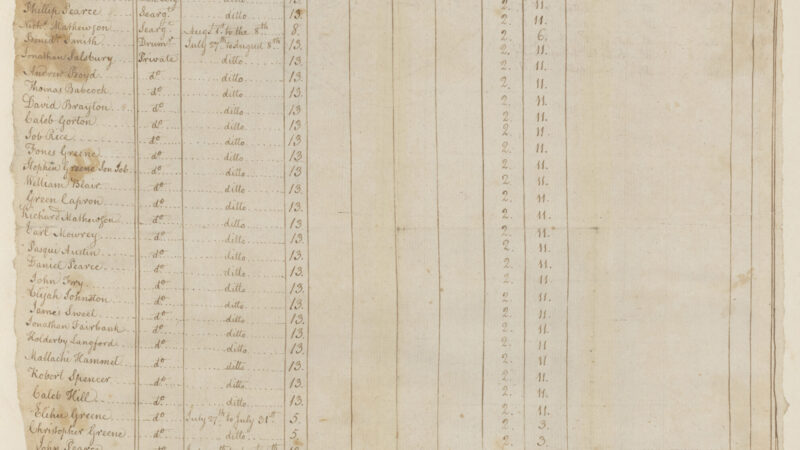 Phillip Pearce Searg.t ditto 13. 2. 11.
Nich.s Mathewson Searg.t Augst 1.t to the 8th 8. 2. 6.
Bened.t Smith Drum.r July 27th to August 8th 13. 2. 11.
Jonathan Salsbury Private ditto 13 2. 11.
Andrew Boyd do ditto 13 2. 11.
Thomas Babcock do ditto 13 2. 11.
David Brayton do ditto 13 2. 11.
Caleb Gorton do ditto 13 2. 11.
Job Rice do ditto 13 2. 11.
Fones Greene do ditto 13 2. 11.
Stephen Greene Son Job do ditto 13 2. 11.
William Blair do ditto 13. 2. 11.
Green Capron do ditto 13. 2. 11.
Richard Mathewson do ditto 13. 2. 11.
Earl Mowrey do ditto 13. 2. 11.
Pasqui Austin do ditto 13. 2. 11.
Daniel Pearce do ditto 13. 2. 11.
John Fry do ditto 13. 2. 11.
Elijah Johnston do ditto 13. 2. 11.
James Sweet do ditto 13. 2. 11.
Jonathan Fairbank do ditto 13. 2. 11.
Holderby Langford do ditto 13. 2. 11.
Mallachi Hammel do ditto 13. 2. 11.
Robert Spencer do ditto 13. 2. 11.
Caleb Hill do ditto 13. 2. 11.
Elihu Greene do July 27th to July 31st 5. 2. 3.
Christopher Greene do ditto 5. 2. 3.
John Pearce